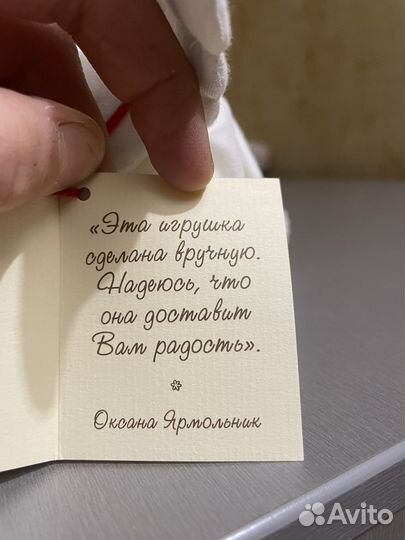 «Эта игрушка
сделана вручную.
Надеюсь, что
она доставит
Вам радость».
Оксана Ярмольник
Avito